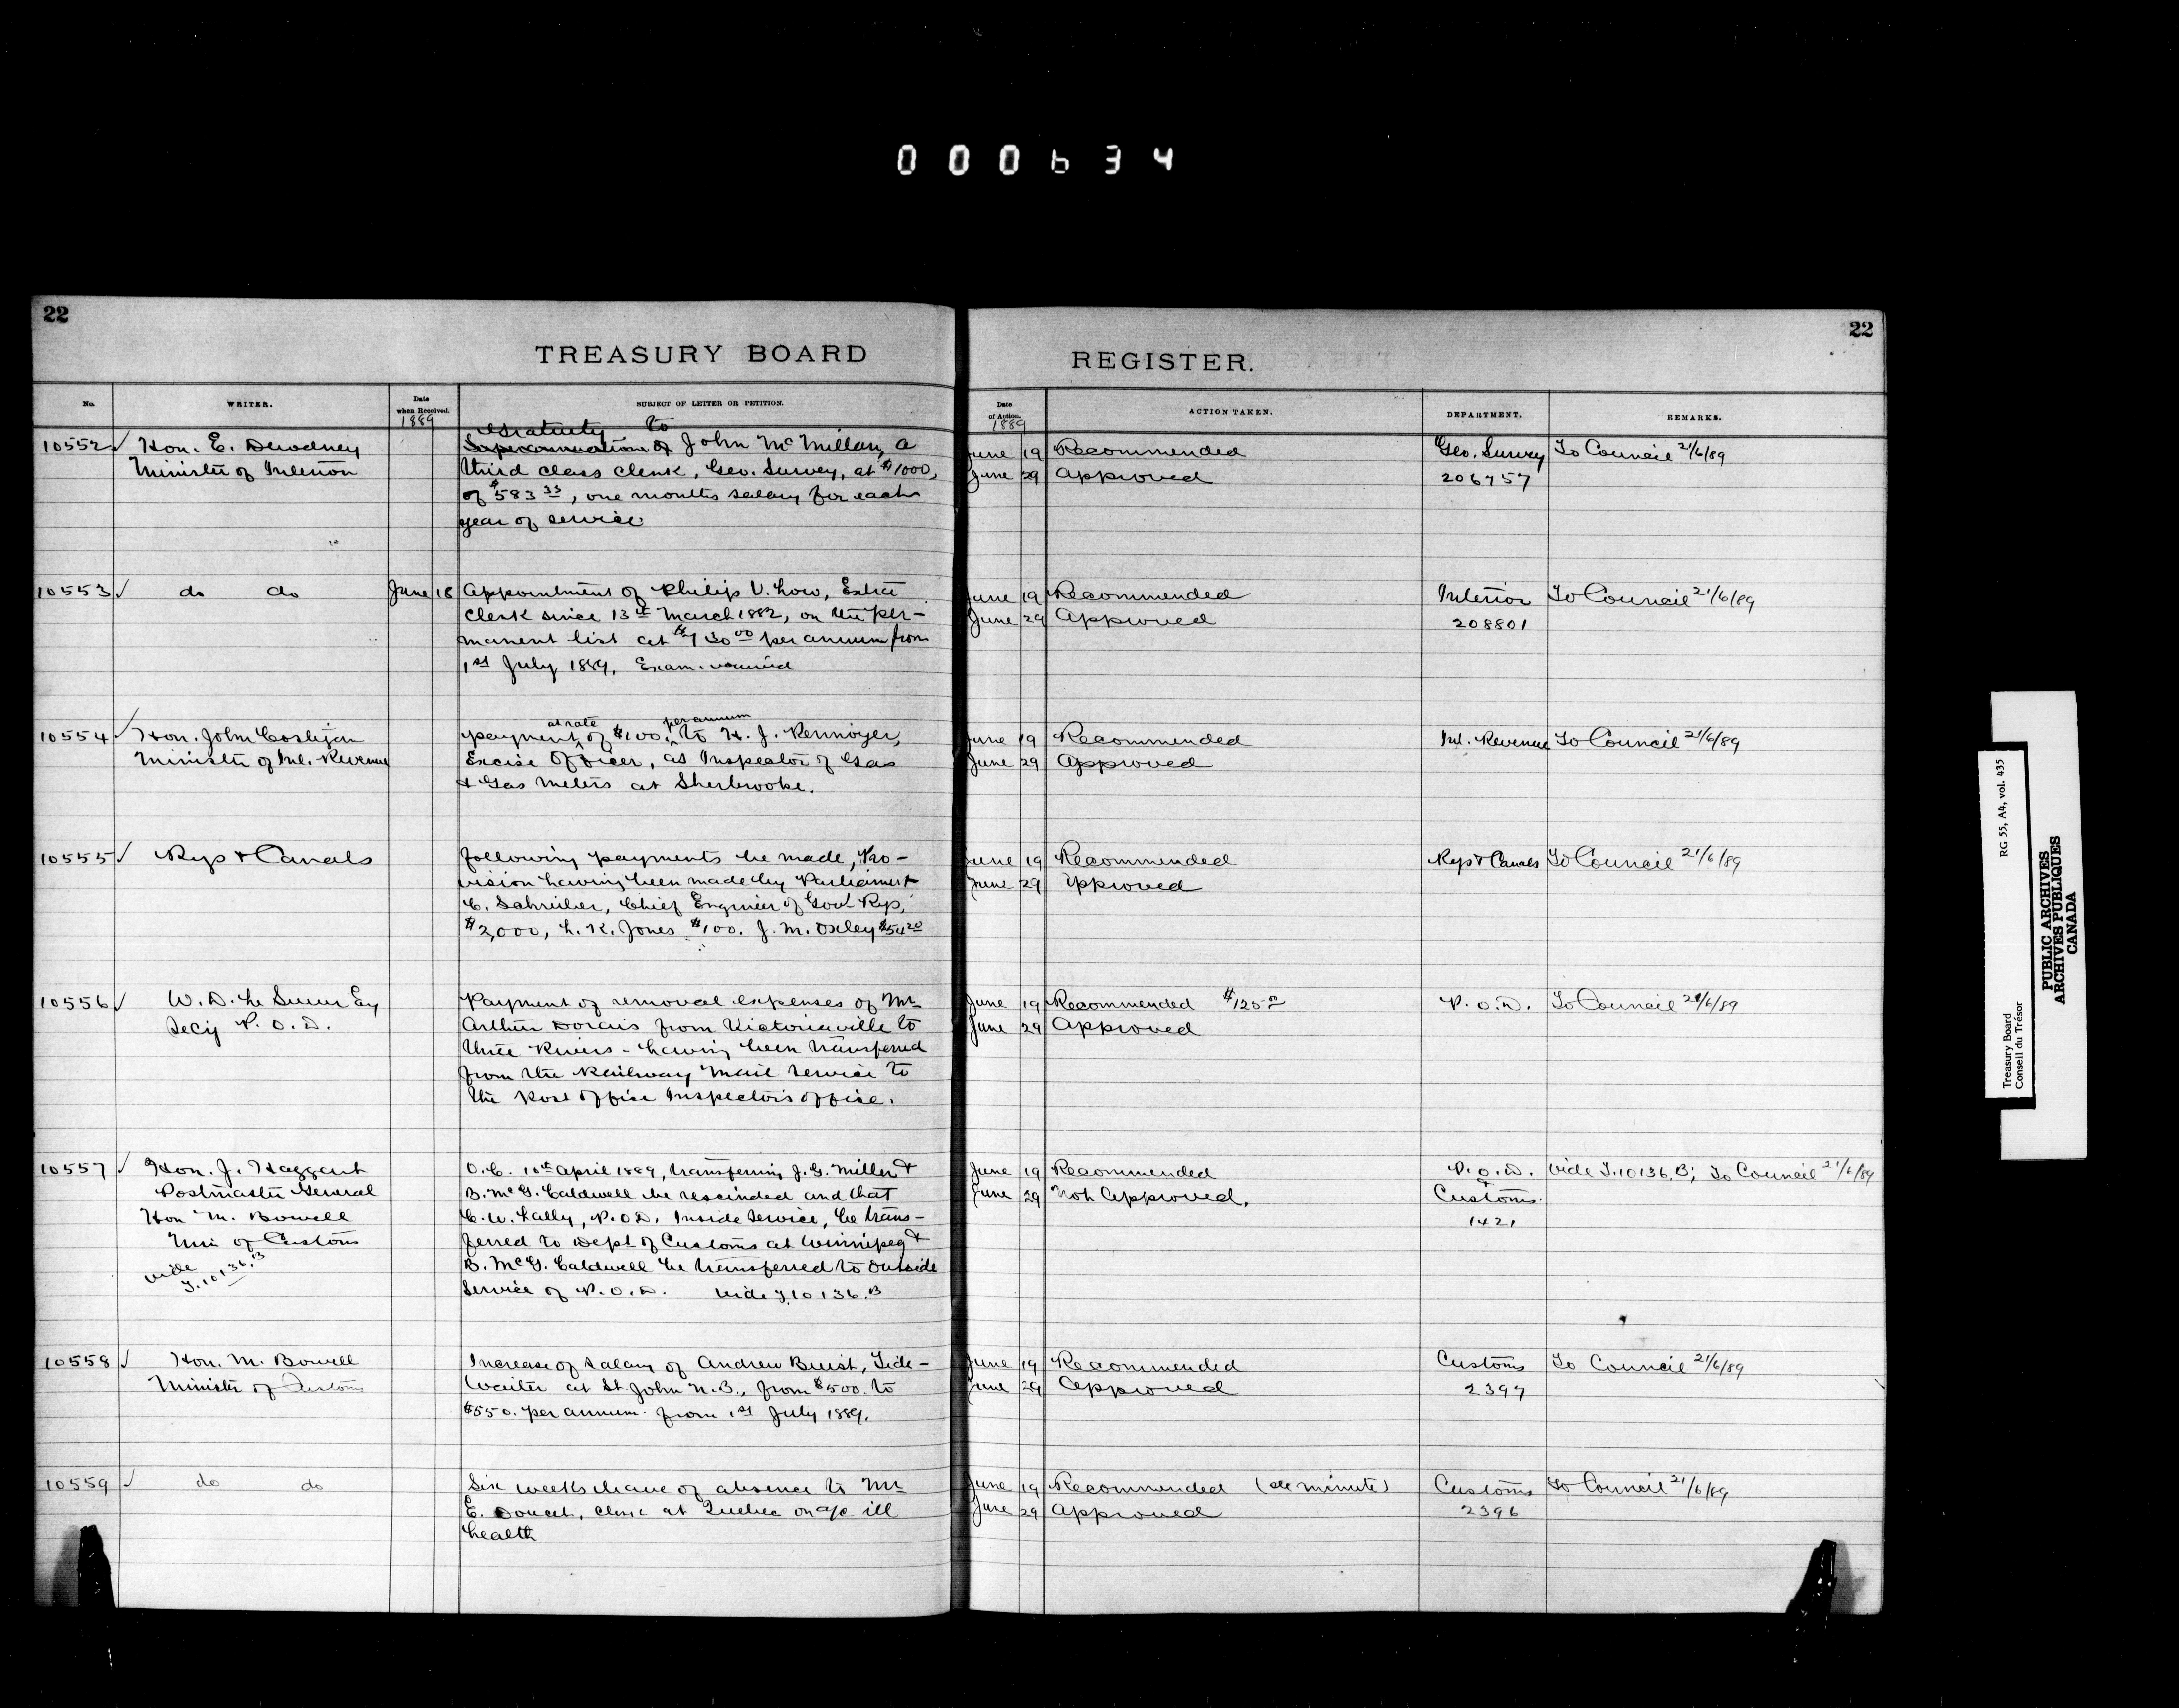 000634
22
TREASURY BOARD
No.
WRITER.
Date
when Received.
1889
SUBJECT OF LETTER OR PETITION.
10552 ✓
Hon. E. Dewdney
Minister of Interior
Gratuity to
Superannuation of John McMillan, a
third class clerk, Geo. Survey, at $1000,
of $583 33, one months salary for each
year of service
10553 ✓
do do
June 18
Appointment of Philip V. Low, Extra
Clerk since 13th March 1882, on the per-
manent list at $730 00 per annum from
1st July 1889. Exam.
10554 ✓
Hon. John Costigan
Minister of Inl. Revenue
at rate per annum
payment of $100. to H. J. Kennoyer,
Excise Officer, as Inspector of Gas
& Gas Meters at Sherbrooke.
10555 ✓
Rys & Canals
following payments be made, Pro-
vision having been made by Parliament
C. Schreiber, Chief Engineer of Govt Rys,
$2,000, L. K. Jones $100. J. M. Oxley $54 20
10556 ✓
W. D. Le Sueur Esq
Secy P. O. D.
Payment of removal expenses of Mr
Arthur Dorais from Victoriaville to
Three Rivers - having been transferred
from the Railway Mail Service to
the Post Office Inspectors office.
10557 ✓
Hon. J. Haggart
Postmaster General
Hon M. Bowell
Min of Customs
vide
T. 10136. B
O. C. 10th April 1889, transferring J. G. Miller &
B. McG. Caldwell be rescinded and that
C. W. Lally, P.O.D. Inside Service, be trans-
ferred to Dept of Customs at Winnipeg &
B. McG. Caldwell be transferred to Outside
Service of P. O. D. vide T. 10136. B
10558 ✓
Hon. M. Bowell
Minister of Customs
Increase of salary of Andrew Buist, Tide-
Waiter at St. John N.B., from $500. to
$550. per annum from 1st July 1889.
10559 ✓
do do
Six weeks leave of absence to Mr
E. Doucet, clerk at Quebec on a/c ill
health
22
REGISTER.
Date
of Action.
1889
ACTION TAKEN.
DEPARTMENT.
REMARKS.
June 19 Recommended Geo. Survey To Council 21/6/89
June 29 Approved 206757
June 19 Recommended Interior To Council 21/6/89
June 29 Approved 208801
June 19 Recommended Inl. Revenue To Council 21/6/89
June 29 Approved
June 19 Recommended Rys & Canals To Council 21/6/89
June 29 Approved
June 19 Recommended $125 P. O. D. To Council 21/6/89
June 29 Approved
June 19 Recommended P. O. D. vide T. 10136. B; To Council 21/6/89
&
June 29 Not Approved. Customs.
1421
June 19 Recommended Customs To Council 21/6/89
June 29 Approved 2397
June 19 Recommended (see minute) Customs To Council 21/6/89
June 29 Approved 2396
Treasury Board
Conseil du Trésor
RG 55, A4, vol. 435
PUBLIC ARCHIVES
ARCHIVES PUBLIQUES
CANADA